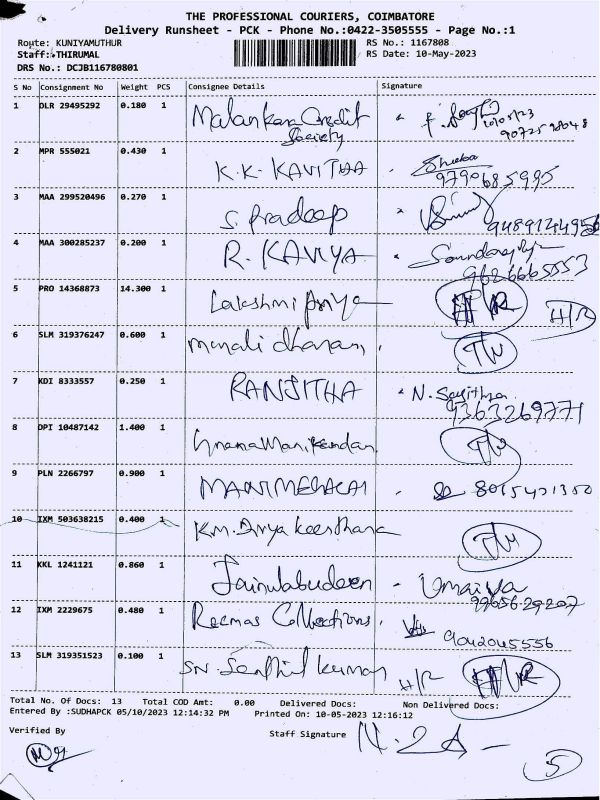 THE PROFESSIONAL COURIERS, COIMBATORE
Delivery Runsheet - PCK - Phone No.:0422-3505555 - Page No.:1
Route: KUNIYAMUTHUR RS No.: 1167808
Staff: THIRUMAL RS Date: 10-May-2023
DRS No.: DCJB116780801
S No Consignment No Weight PCS Consignee Details Signature
1 DLR 29495292 0.180 1 Malankara Credit
Society
2 MPR 555021 0.430 1 K.K. KAVITHA Sheeba
9790685995
3 MAA 299520496 0.270 1 S. Pradeep
9489124956
4 MAA 300285237 0.200 1 R. KAVIYA
9626665553
5 PRO 14368873 14.300 1 Lakshmi Priya H/R
6 SLM 319376247 0.600 1
7 KDI 8333557 0.250 1 RANJITHA N. Savithra
9363269771
8 DPI 10487142 1.400 1
9 PLN 2266797 0.900 1 MANIMEGALAI 8015421350
10 IXM 503638215 0.400 1 K.M. Divya Keerthana
11 KKL 1241121 0.860 1 Jainulabudeen - Umaiya
99656-29207
12 IXM 2229675 0.480 1 Reemas Collections.
9042045556
13 SLM 319351523 0.100 1 SN. Senthil kumar H/R
Total No. Of Docs: 13 Total COD Amt: 0.00 Delivered Docs: Non Delivered Docs:
Entered By :SUDHAPCK 05/10/2023 12:14:32 PM Printed On: 10-05-2023 12:16:12
Verified By Staff Signature
5